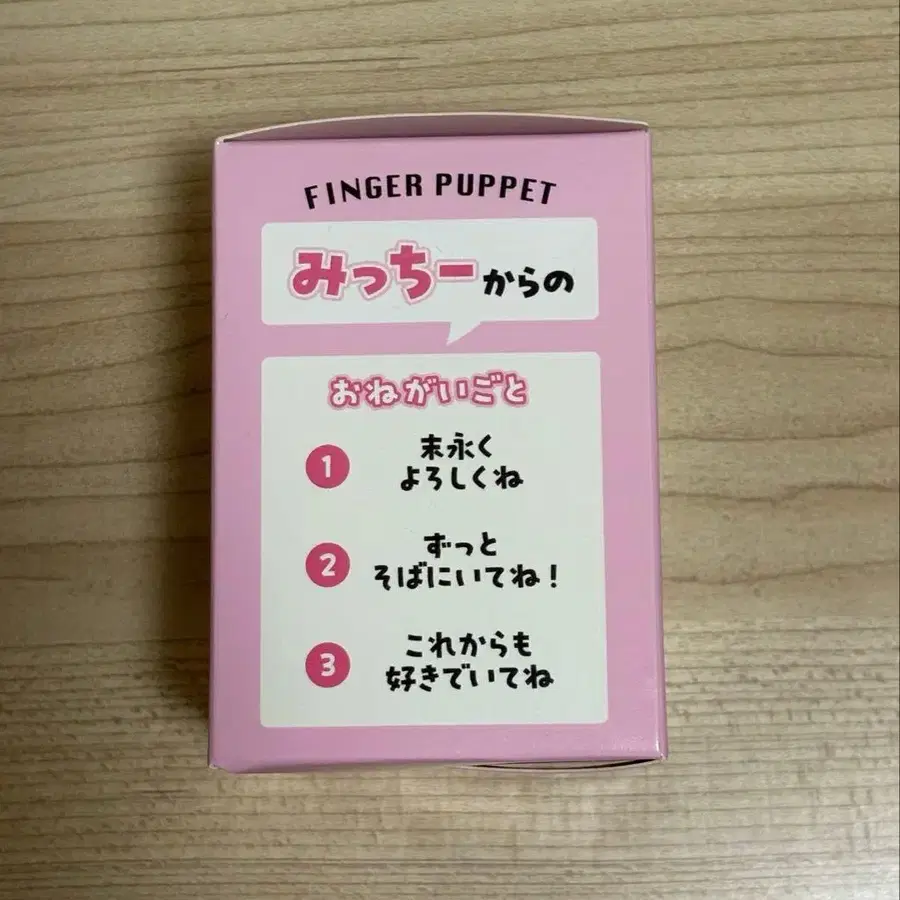 FINGER PUPPET
みっちーからの
おねがいごと
1
末永く
よろしくね
2
ずっと
そばにいてね！
3
これからも
好きでいてね